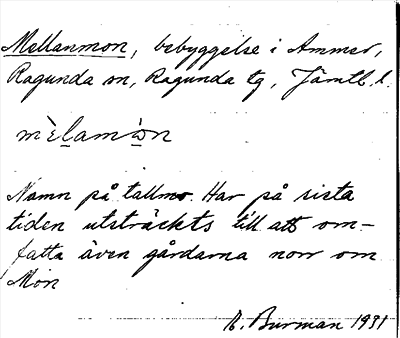 Mellanmon, bebyggelse i Ammer,
Ragunda sn, Ragunda tg, Jämtl. l.
mèlamòn
Namn på tallmo. Har på sista
tiden utsträckts till att om-
fatta även gårdarna norr om
Mon
B. Burman 1931